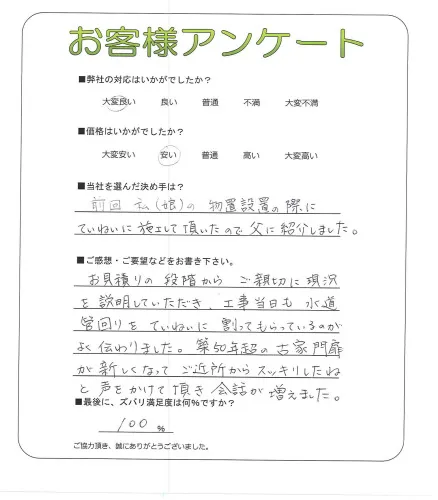 お客様アンケート
■弊社の対応はいかがでしたか？
大変良い 良い 普通 不満 大変不満
■価格はいかがでしたか？
大変安い 安い 普通 高い 大変高い
■当社を選んだ決め手は？
前回 私(娘)の 物置設置の際に
ていねいに施工して頂いたので父に紹介しました。
■ご感想・ご要望などをお書き下さい。
お見積りの段階から ご親切に現況
を説明していただき、工事当日も 水道
管回りを ていねいに 割ってもらっているのが
よく伝わりました。築50年超の古家門扉
が新しくなって ご近所からスッキリしたね
と声をかけて頂き 会話が増えました。
■最後に、ズバリ満足度は何％ですか？
100 %
ご協力頂き、誠にありがとうございました。